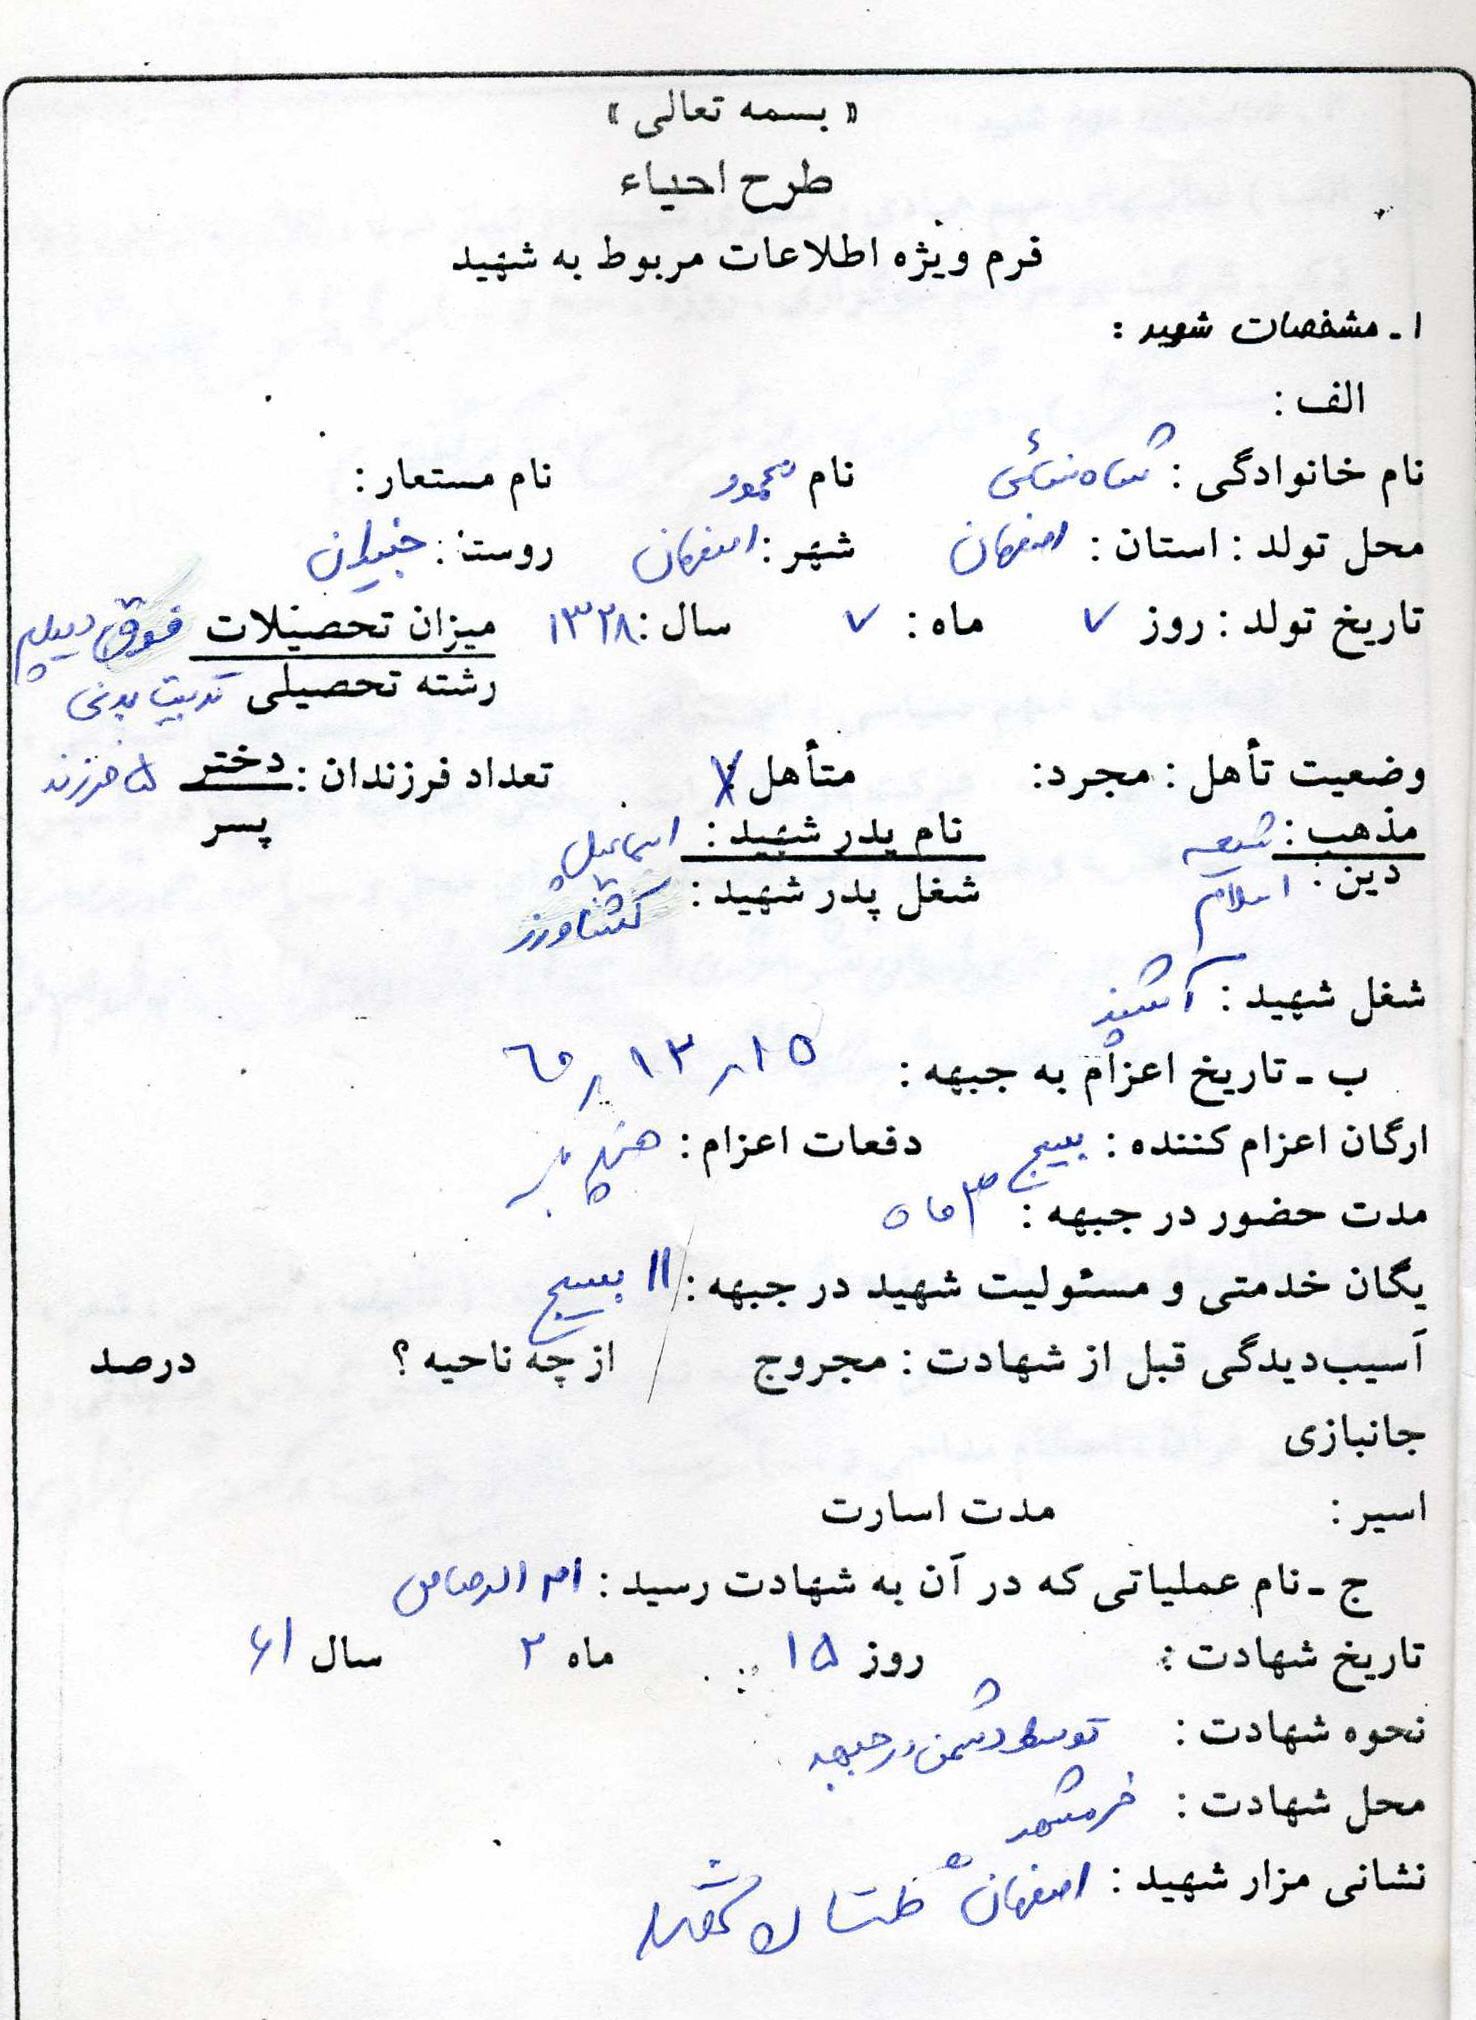 « بسمه تعالی »
طرح احیاء
فرم ویژه اطلاعات مربوط به شهید
۱ ـ مشخصات شهید :
الف :
نام خانوادگی : شاه‌سنائی نام محمود نام مستعار :
محل تولد : استان : اصفهان شهر : اصفهان روستا : خیبران
تاریخ تولد : روز ۷ ماه : ۷ سال : ۱۳۲۸ میزان تحصیلات فوق دیپلم
رشته تحصیلی تربیت بدنی
وضعیت تأهل : مجرد: متأهل : تعداد فرزندان : دختر ۵ فرزند
پسر
مذهب : شیعه نام پدر شهید : اسماعیل
دین : اسلام شغل پدر شهید : کشاورز
شغل شهید : آشپز
ب ـ تاریخ اعزام به جبهه : ۱۵ ر ۱۲ ر ۶۰
ارگان اعزام کننده : بسیج دفعات اعزام :
مدت حضور در جبهه : ۳ ماه
یگان خدمتی و مسئولیت شهید در جبهه : // بسیج
آسیب‌دیدگی قبل از شهادت : مجروح از چه ناحیه ؟ درصد
جانبازی
اسیر : مدت اسارت
ج ـ نام عملیاتی که در آن به شهادت رسید :
تاریخ شهادت : روز ۱۵ ماه ۲ سال ۶۱
نحوه شهادت : توسط دشمن در جبهه
محل شهادت : خرمشهر
نشانی مزار شهید : اصفهان گلستان شهدا